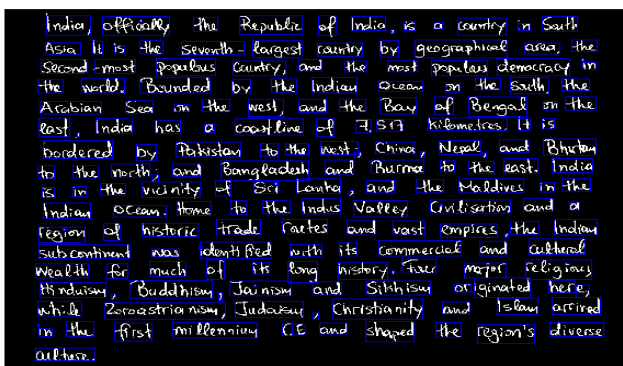 India, officially the Republic of India, is a country in South
Asia. It is the seventh-largest country by geographical area, the
second-most populous country, and the most populous democracy in
the world. Bounded by the Indian Ocean on the south, the
Arabian Sea on the west, and the Bay of Bengal on the
east, India has a coastline of 7,517 kilometres. It is
bordered by Pakistan to the west; China, Nepal, and Bhutan
to the north; and Bangladesh and Burma to the east. India
is in the vicinity of Sri Lanka, and the Maldives in the
Indian Ocean. Home to the Indus Valley Civilisation and a
region of historic trade routes and vast empires, the Indian
subcontinent was identified with its commercial and cultural
wealth for much of its long history. Four major religions,
Hinduism, Buddhism, Jainism and Sikhism originated here,
while Zoroastrianism, Judaism, Christianity and Islam arrived
in the first millennium CE and shaped the region's diverse
culture.